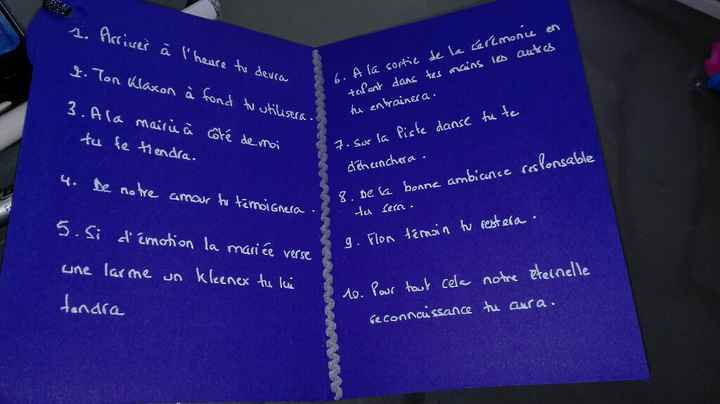 1. Arriver à l'heure tu devra
2. Ton Klaxon à fond tu utilisera.
3. A la mairie à côté de moi
tu te tiendra.
4. De notre amour tu témoignera.
5. Si d'émotion la mariée verse
une larme un kleenex tu lui
tendra
6. A la sortie de la cérémonie en
tapant dans tes mains les autres
tu entrainera.
7. Sur la Piste danse tu te
déhenchera.
8. De la bonne ambiance responsable
tu sera.
9. Mon témoin tu restera.
10. Pour tout cela notre éternelle
reconnaissance tu aura.